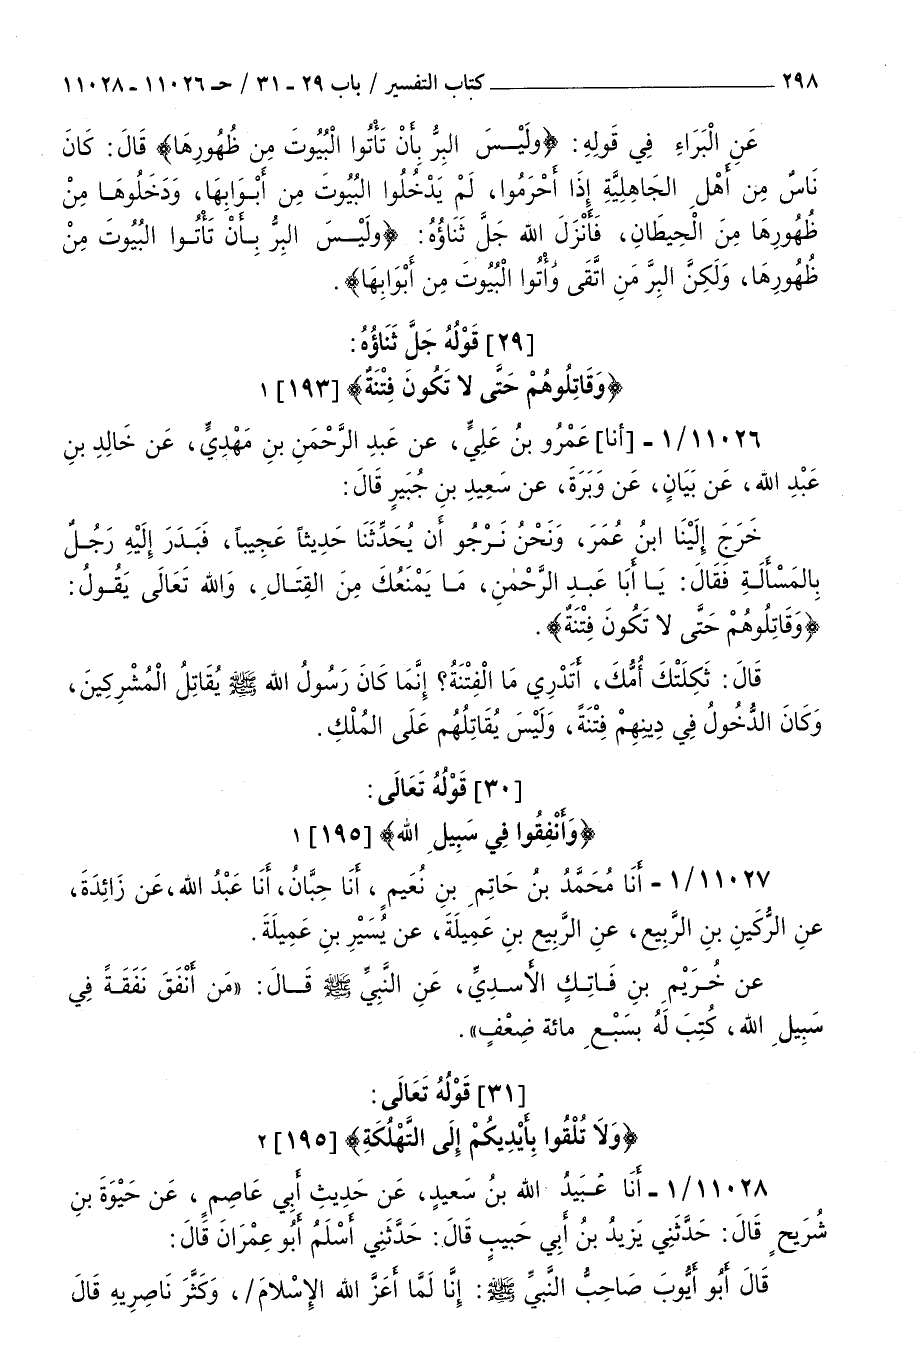 ٢٩٨ ــــــــــــــــــــ كتاب التفسير / باب ٢٩ - ٣١ / حـ ١١٠٢٦ - ١١٠٢٨
عَنِ الْبَرَاءِ فِي قَولِهِ: ﴿ولَيْسَ البِرُّ بِأَنْ تَأْتُوا الْبُيُوتَ مِن ظُهُورِهَا﴾ قَالَ: كَانَ
نَاسٌ مِن أَهْلِ الجَاهِلِيَّةِ إِذَا أَحْرَمُوا، لَمْ يَدْخُلُوا البُيُوتَ مِن أَبْوَابِهَا، وَدَخَلُوهَا مِنْ
ظُهُورِهَا مِنَ الْحِيطَانِ، فَأَنْزَلَ الله جَلَّ ثَنَاؤُهُ: ﴿ولَيْسَ البِرُّ بِأَنْ تَأْتُوا البُيُوتَ مِنْ
ظُهُورِهَا، وَلَكِنَّ البِرَّ مَنِ اتَّقَى وَأْتُوا الْبُيُوتَ مِن أَبْوَابِهَا﴾.
[٢٩] قَوْلُهُ جَلَّ ثَنَاؤُهُ:
﴿وَقَاتِلُوهُمْ حَتَّى لا تَكُونَ فِتْنَةٌ﴾ [١٩٣] ١
١/١١٠٢٦ - [أنا] عَمْرُو بنُ عَلِيٍّ، عن عَبدِ الرَّحْمَنِ بنِ مَهْدِيٍّ، عَن خَالِدِ بنِ
عَبْدِ الله، عَن بَيَانٍ، عَن وَبَرَةَ، عن سَعِيدِ بنِ جُبَيرٍ قَالَ:
خَرَجَ إِلَيْنَا ابنُ عُمَرَ، وَنَحْنُ نَرْجُو أَن يُحَدِّثَنَا حَدِيثاً عَجِيباً، فَبَدَرَ إِلَيْهِ رَجُلٌ
بِالمَسْأَلَةِ فَقَالَ: يَا أَبَا عَبدِ الرَّحْمٰنِ، مَا يَمْنَعُكَ مِنَ القِتَالِ، وَالله تَعَالَى يَقُولُ:
﴿وَقَاتِلُوهُمْ حَتَّى لا تَكُونَ فِتْنَةٌ﴾.
قَالَ: ثَكِلَتْكَ أُمُّكَ، أَتَدْرِي مَا الْفِتْنَةُ؟ إِنَّمَا كَانَ رَسُولُ الله ﷺ يُقَاتِلُ الْمُشْرِكِينَ،
وَكَانَ الدُّخُولُ فِي دِينِهِمْ فِتْنَةً، وَلَيْسَ يُقَاتِلُهُم عَلَى المُلْكِ.
[٣٠] قَوْلُهُ تَعَالَى:
﴿وَأَنْفِقُوا فِي سَبِيلِ الله﴾ [١٩٥] ١
١/١١٠٢٧ - أَنَا مُحَمَّدُ بنُ حَاتِمِ بنِ نُعَيمٍ، أَنَا حِبَّانُ، أَنَا عَبْدُ الله، عَن زَائِدَةَ،
عنِ الرُّكَينِ بنِ الرَّبِيعِ، عنِ الرَّبِيعِ بنِ عَمِيلَةَ، عن يُسَيْرِ بنِ عَمِيلَةَ.
عن خُرَيْمِ بنِ فَاتِكٍ الأَسدِيِّ، عَنِ النَّبِيِّ ﷺ قَالَ: «مَن أَنْفَقَ نَفَقَةً فِي
سَبِيلِ الله، كُتِبَ لَهُ بِسَبْعِ مائة ضِعْفٍ».
[٣١] قَوْلُهُ تَعَالَى:
﴿وَلَا تُلْقُوا بِأَيْدِيكُمْ إِلَى التَّهْلُكَةِ﴾ [١٩٥] ٢
١/١١٠٢٨ - أَنَا عُبَيدُ الله بنُ سَعيدٍ، عَن حَدِيثِ أَبِي عَاصِمٍ، عَن حَيْوَةَ بنِ
شُرَيحٍ قَالَ: حَدَّثَنِي يَزِيدُ بنُ أَبِي حَبيبٍ قَالَ: حَدَّثَنِي أَسْلَمُ أَبُو عِمْرَانَ قَالَ:
قَالَ أَبُو أَيُّوبَ صَاحِبُ النَّبِيِّ ﷺ: إِنَّا لَمَّا أَعَزَّ الله الإِسْلَامَ/، وَكَثَّرَ نَاصِرِيهِ قَالَ